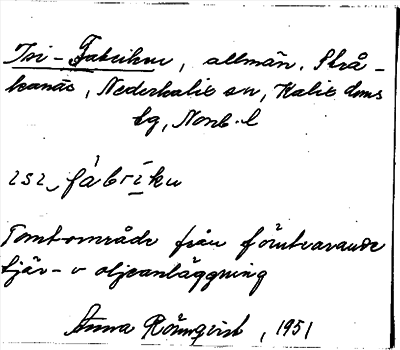 Isi-Fabriken, allmän. Strå-
kanäs, Nederkalix sn, Kalix dms
tg, Norrb. l
ısı, fàbrìkıı
Tomtområde från förutvarande
tjär- o oljeanläggning
Anna Rönnqvist, 1951